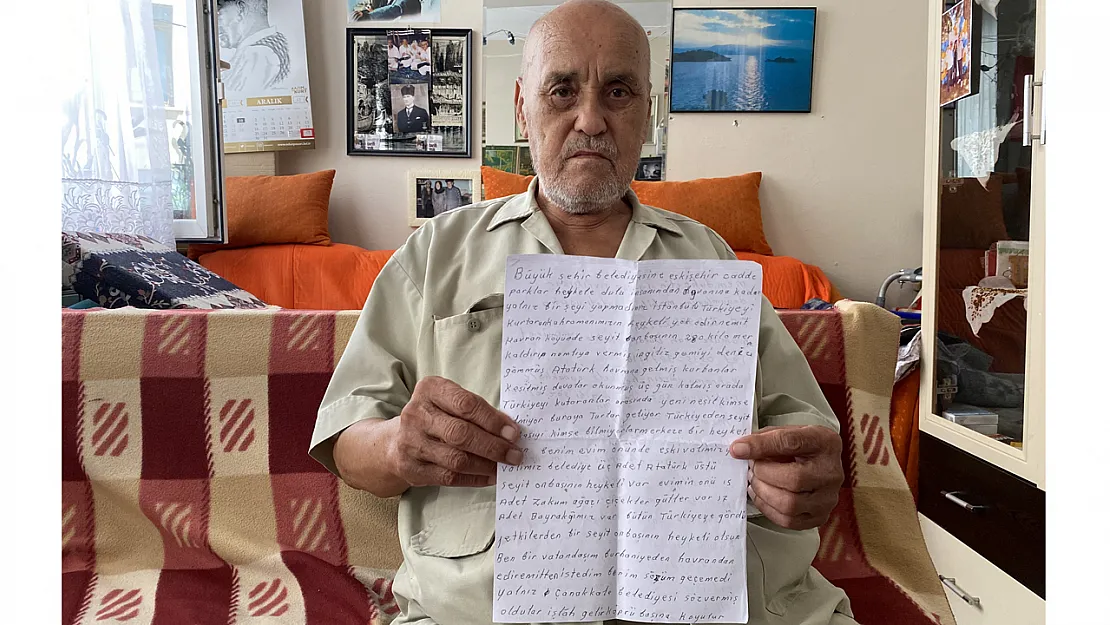 ARALIK
Büyük şehir belediyesine eskişehir cadde
parklar heykele dolu
yalnız bir şeyi yapmadınız İstanbulu Türkiyeyi
Kurtaran kahramanımızın heykeli yok edirinemit
Havran köyünde seyit onbaşının 280 kilo mer
kaldırıp namluya vermiş ingiliz gemiyi denize
gömmüş Atatürk havrana gelmiş kurbanlar
Kesilmiş dovalar okunmuş üç gün kalmış orada
Türkiyeyi kutaranlar arasında yeni nesil kimse
bilmiyor buraya Turlar geliyor Türkiyeden seyit
kimse bilmiyorlar merkeze bir heykel
benim evim önünde eski valimiz
valimiz belediye üç Adet Atatürk üstü
seyit onbaşının heykeli var evimin önü 15
Adet Zakum ağacı çiçekler güller var 17
Adet Bayrağımız var bütün Türkiyeye gördü
yetkilerden bir seyit onbaşının heykeli olsun
Ben bir vatandaşım burhaniyeden havrandan
ediremitten istedim benim sözüm geçemedi
yalnız Çanakkale belediyesi söz vermiş
oldular işlah gelir köprü başına koyulur